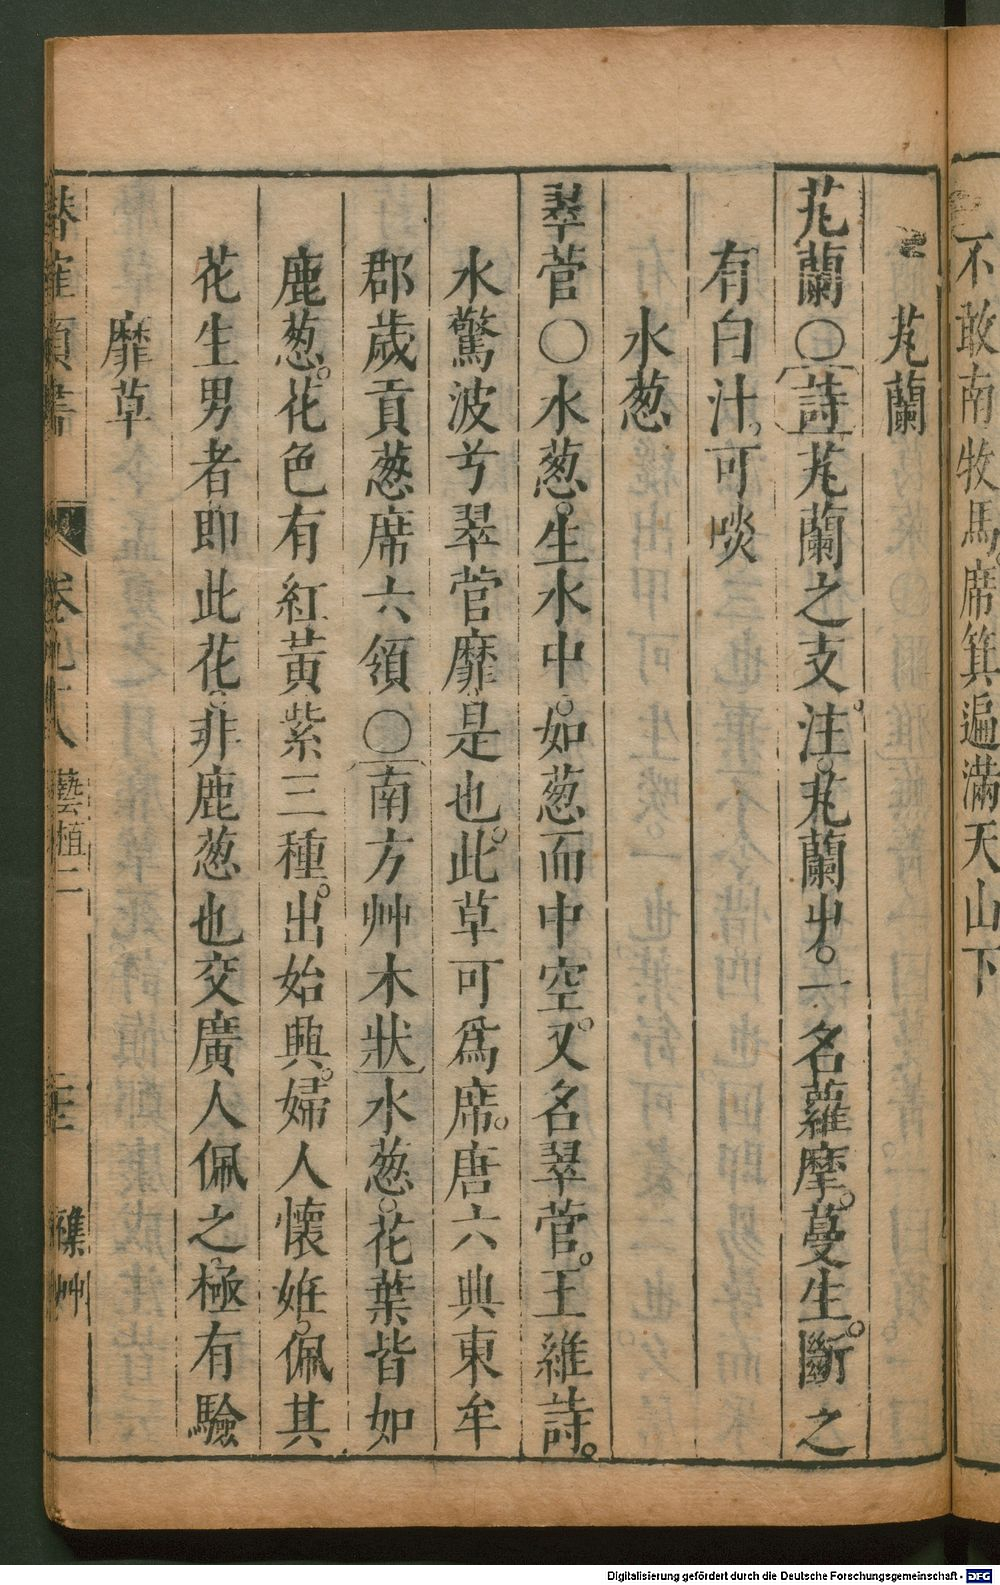 不敢南牧馬席箕遍滿天山下
芄蘭
芄蘭〇詩芄蘭之支注芄蘭屮。一名蘿摩。蔓生。斷之
有白汁可啖
水葱
翠菅〇水葱。生水中。如葱而中空。又名翠菅。王維詩。
水驚波兮翠菅靡是也。此草可爲席。唐六典東牟
郡歲貢葱席六領〇南方艸木狀水葱。花葉皆如
鹿葱。花色有紅黃紫三種。出始興。婦人懷姙。佩其
花生男者即此花。非鹿葱也交廣人佩之極有驗
靡草
潛確類書 卷 藝植二 襍艸
Digitalisierung gefördert durch die Deutsche Forschungsgemeinschaft - DFG